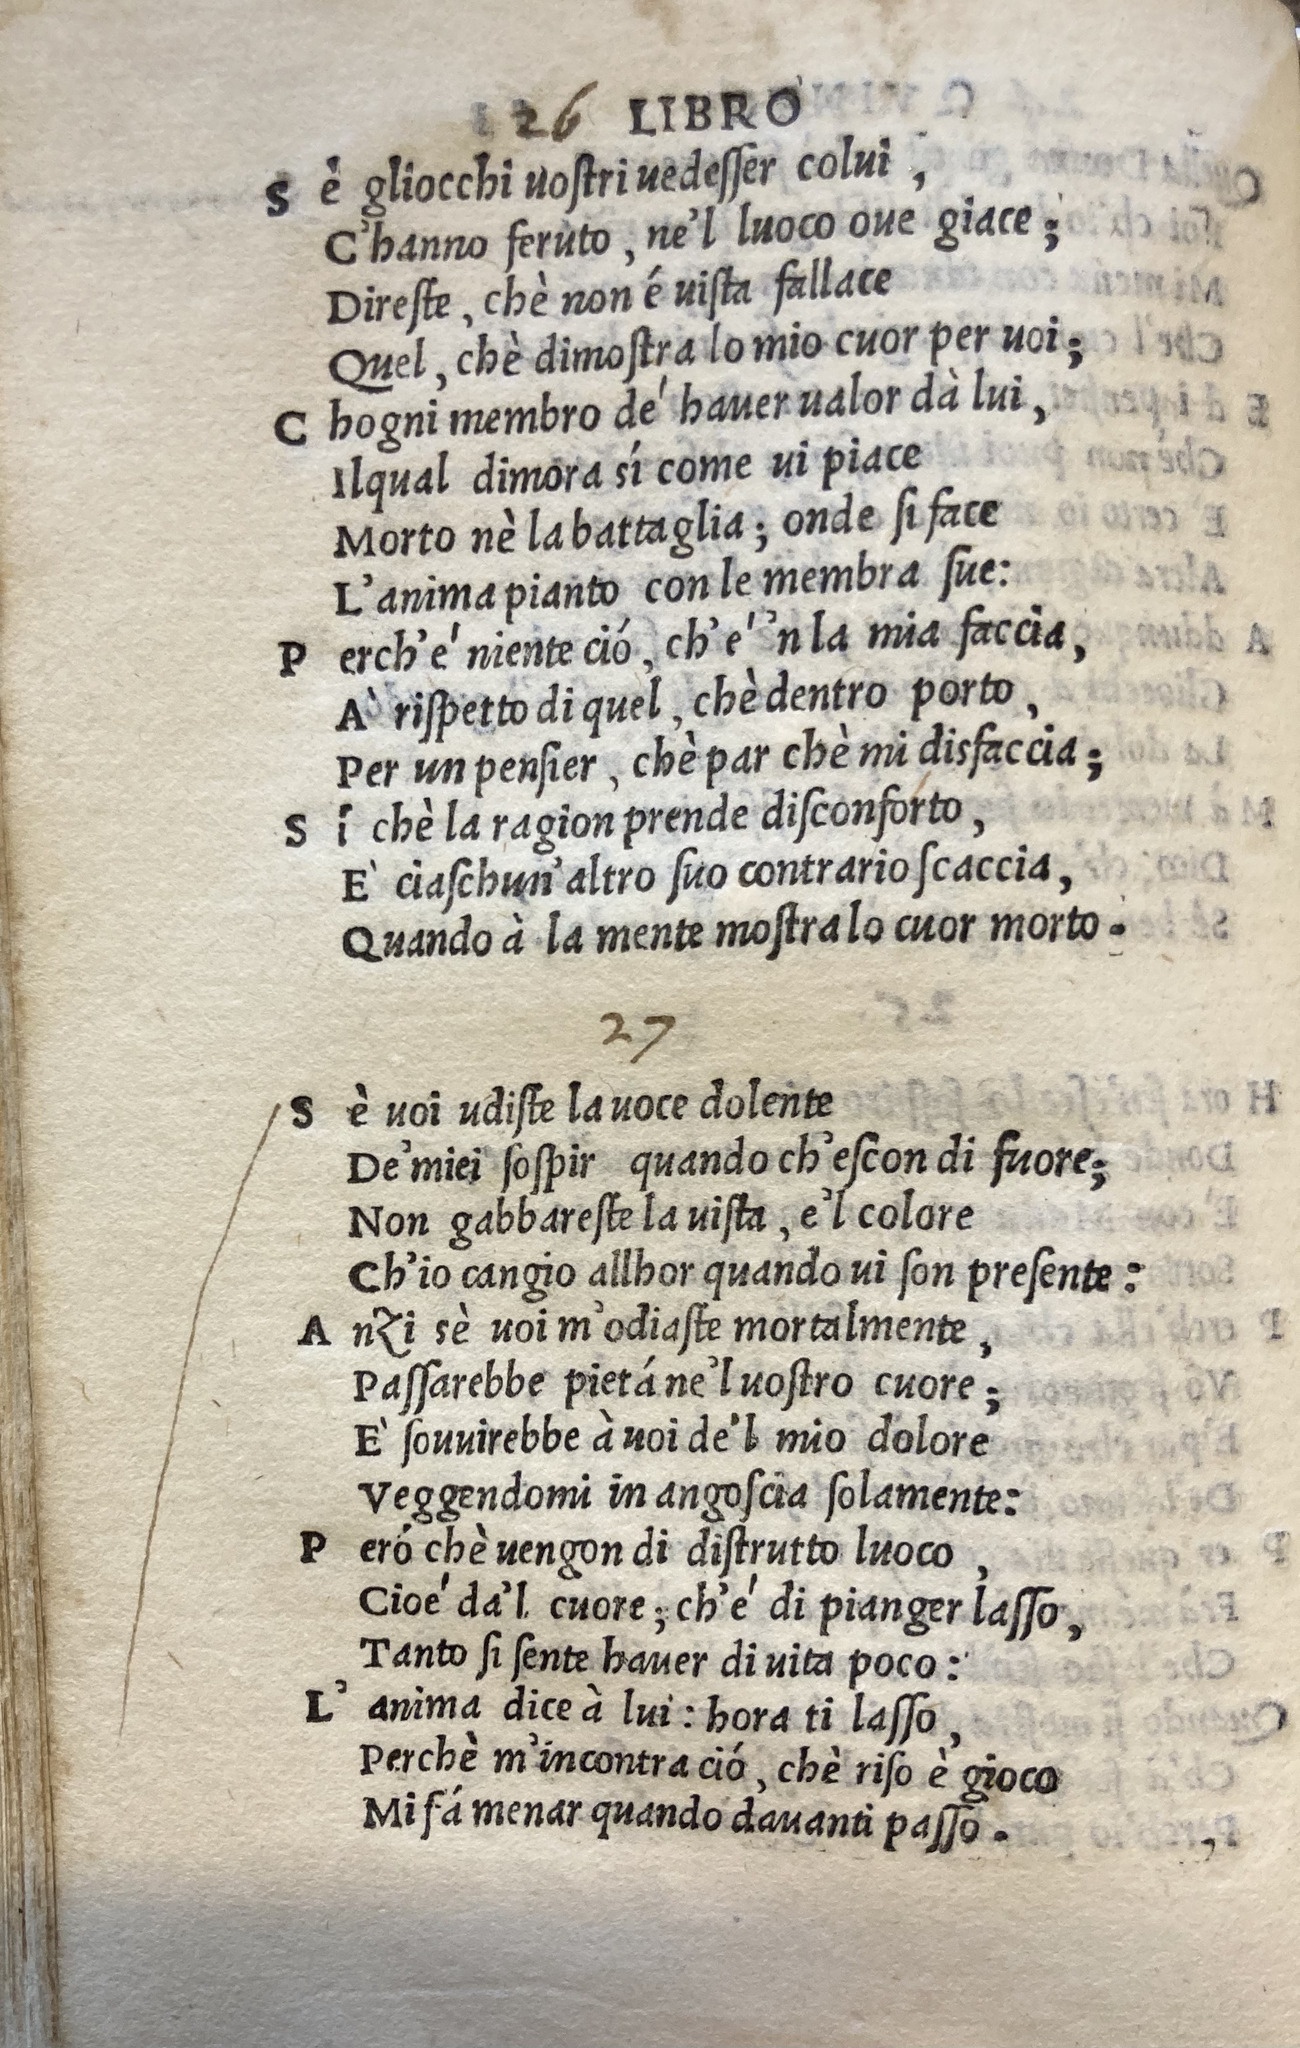 26 LIBRO
S è gliocchi uoſtri uedeſſer colui,
C'hanno feruto, ne'l luoco oue giace;
Direſte, chè non é uiſta fallace
Quel, chè dimoſtra lo mio cuor per uoi;
C hogni membro de' hauer ualor dà lui,
Ilqual dimora sí come ui piace
Morto nè la battaglia; onde ſi face
L'anima pianto con le membra ſue:
P erch'e' niente ció, ch'e' 'n la mia faccia,
A' riſpetto di quel, chè dentro porto,
Per un penſier, chè par chè mi disfaccia;
S í chè la ragion prende diſconforto,
E' ciaſchun'altro ſuo contrario scaccia,
Quando à la mente moſtra lo cuor morto.
27
S è uoi udiſte la uoce dolente
De'miei soſpir quando ch'eſcon di fuore;
Non gabbareſte la uiſta, e'l colore
Ch'io cangio allhor quando ui ſon preſente:
A nzi sè uoi m'odiaſte mortalmente,
Paſſarebbe pietá ne'l uoſtro cuore;
E' ſouuirebbe à uoi de'l mio dolore
Veggendomi in angoſcia ſolamente:
P eró chè uengon di diſtrutto luoco,
Cioe' da'l cuore; ch'e' di pianger laſſo,
Tanto ſi ſente hauer di uita poco:
L' anima dice à lui: hora ti laſſo,
Perchè m'incontra ció, chè riſo è gioco
Mi fá menar quando dauanti paſſo.